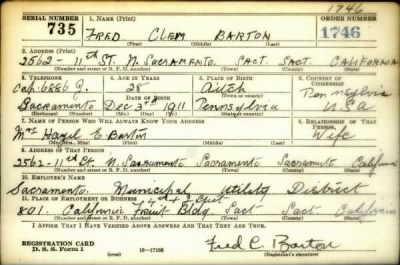 1746
SERIAL NUMBER 1. NAME (Print) ORDER NUMBER
735 FRED CLEM BARTON 1746
(First) (Middle) (Last)
2. ADDRESS (Print)
2562-11th ST. N. SACRAMENTO. SACT. SACT. CALIFORNIA
(Number and street or R. F. D. number) (Town) (County) (State)
3. TELEPHONE 4. AGE IN YEARS 5. PLACE OF BIRTH 6. COUNTRY OF CITIZENSHIP
Cap. 6886 J. 28 Aitch
DATE OF BIRTH
Sacramento Dec-3rd 1911 Pennsylvia U.S.A
(Exchange) (Number) (Mo.) (Day) (Yr.) (State or country)
7. NAME OF PERSON WHO WILL ALWAYS KNOW YOUR ADDRESS 8. RELATIONSHIP OF THAT PERSON
Mrs Hazel E. Barton Wife
(Mr., Mrs., Miss) (First) (Middle) (Last)
9. ADDRESS OF THAT PERSON
2562-11th St. N. Sacramento Sacramento Sacramento California
(Number and street or R. F. D. number) (Town) (County) (State)
10. EMPLOYER'S NAME
Sacramento. Municipal Utility District
11. PLACE OF EMPLOYMENT OR BUSINESS
801. California Fruit Bldg Sact Sact. California
(Number and street or R. F. D. number) (Town) (County) (State)
I AFFIRM THAT I HAVE VERIFIED ABOVE ANSWERS AND THAT THEY ARE TRUE.
REGISTRATION CARD
D. S. S. Form 1 (over) 16-17105 Fred C Barton
(Registrant's signature)